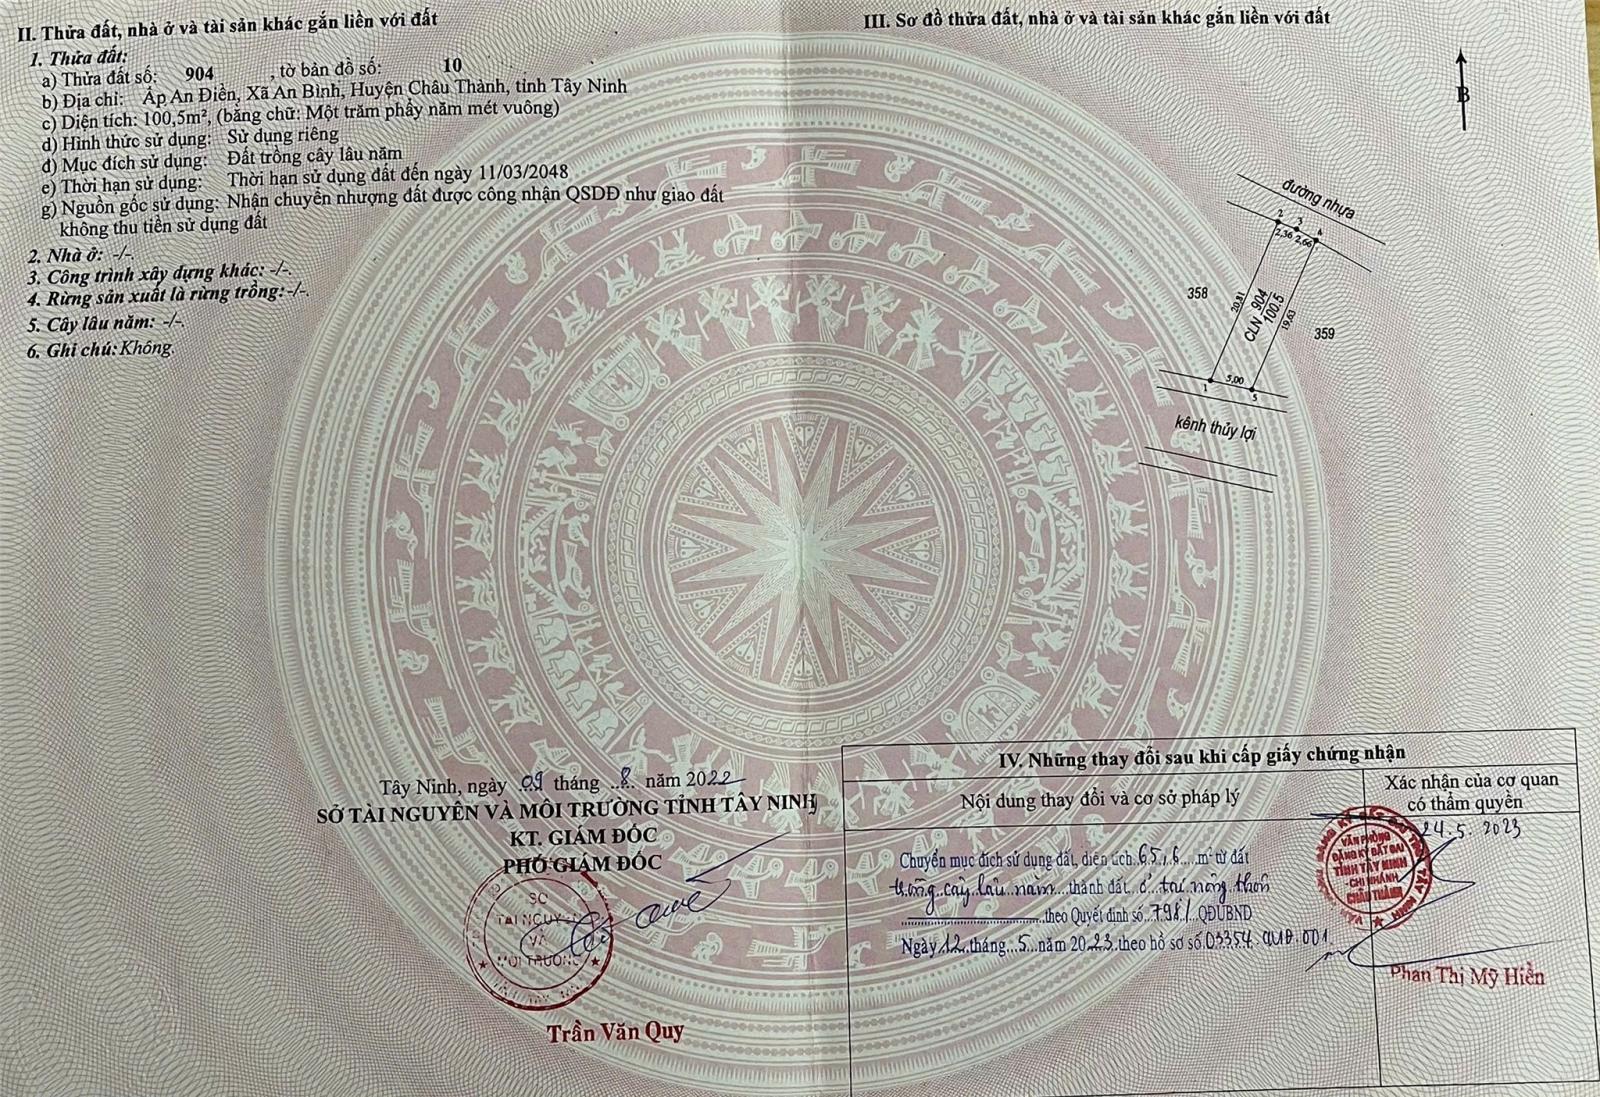 II. Thửa đất, nhà ở và tài sản khác gắn liền với đất
1. Thửa đất:
a) Thửa đất số: 904 , tờ bản đồ số: 10
b) Địa chỉ: Ấp An Điền, Xã An Bình, Huyện Châu Thành, tỉnh Tây Ninh
c) Diện tích: 100,5m², (bằng chữ: Một trăm phẩy năm mét vuông)
d) Hình thức sử dụng: Sử dụng riêng
đ) Mục đích sử dụng: Đất trồng cây lâu năm
e) Thời hạn sử dụng: Thời hạn sử dụng đất đến ngày 11/03/2048
g) Nguồn gốc sử dụng: Nhận chuyển nhượng đất được công nhận QSDĐ như giao đất
không thu tiền sử dụng đất
2. Nhà ở: -/-.
3. Công trình xây dựng khác: -/-.
4. Rừng sản xuất là rừng trồng: -/-.
5. Cây lâu năm: -/-.
6. Ghi chú: Không.
Tây Ninh, ngày 09 tháng 8 năm 2022
SỞ TÀI NGUYÊN VÀ MÔI TRƯỜNG TỈNH TÂY NINH
KT. GIÁM ĐỐC
PHÓ GIÁM ĐỐC
SỞ
TÀI NGUYÊN
VÀ
MÔI TRƯỜNG
Trần Văn Quy
III. Sơ đồ thửa đất, nhà ở và tài sản khác gắn liền với đất
B
đường nhựa
2 3 4
2,36 2,66
358
20,81
CLN 904
100.5
19,63
359
1 5,00 5
kênh thủy lợi
IV. Những thay đổi sau khi cấp giấy chứng nhận
Nội dung thay đổi và cơ sở pháp lý
Xác nhận của cơ quan
có thẩm quyền
24.5.2023
Chuyển mục đích sử dụng đất, diện tích 65,6 m² từ đất
trồng cây lâu năm thành đất ở tại nông thôn
theo Quyết định số 798/ QĐUBND
Ngày 12 tháng 5 năm 2023 theo hồ sơ số 03354.CMĐ.001
VĂN PHÒNG
ĐĂNG KÝ ĐẤT ĐAI
TỈNH TÂY NINH
-CHI NHÁNH
CHÂU THÀNH
Phan Thị Mỹ Hiền